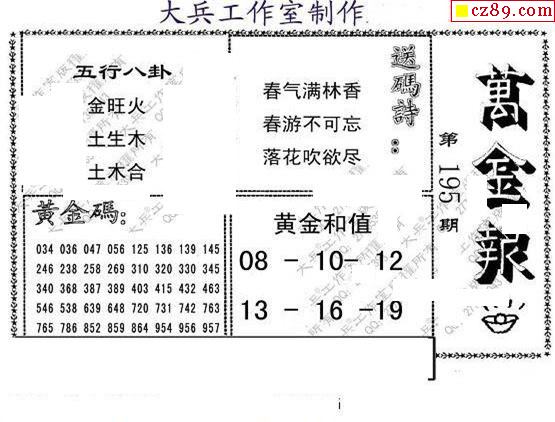 大兵工作室制作
cz89.com
五行八卦
金旺火
土生木
土木合
送碼詩:
春气满林香
春游不可忘
落花吹欲尽
萬金報
第195期
黃金碼:
034 036 047 056 125 136 139 145
246 238 258 269 310 320 330 345
340 368 387 389 403 415 432 463
546 538 639 648 720 731 742 763
765 786 852 859 864 954 956 957
黄金和值
08 - 10- 12
13 - 16 -19